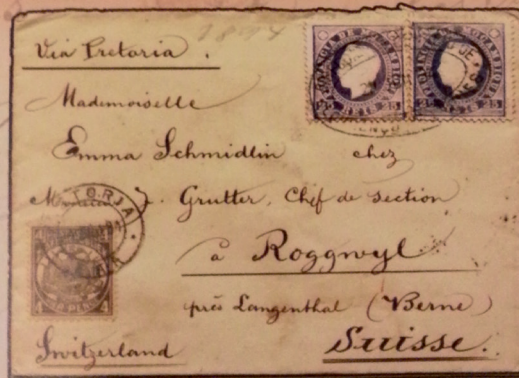 1894
Via Pretoria.
Mademoiselle
Emma Schmidlin chez
J. Grutter, Chef de section
à Roggwyl
près Langenthal (Berne)
Switzerland Suisse.